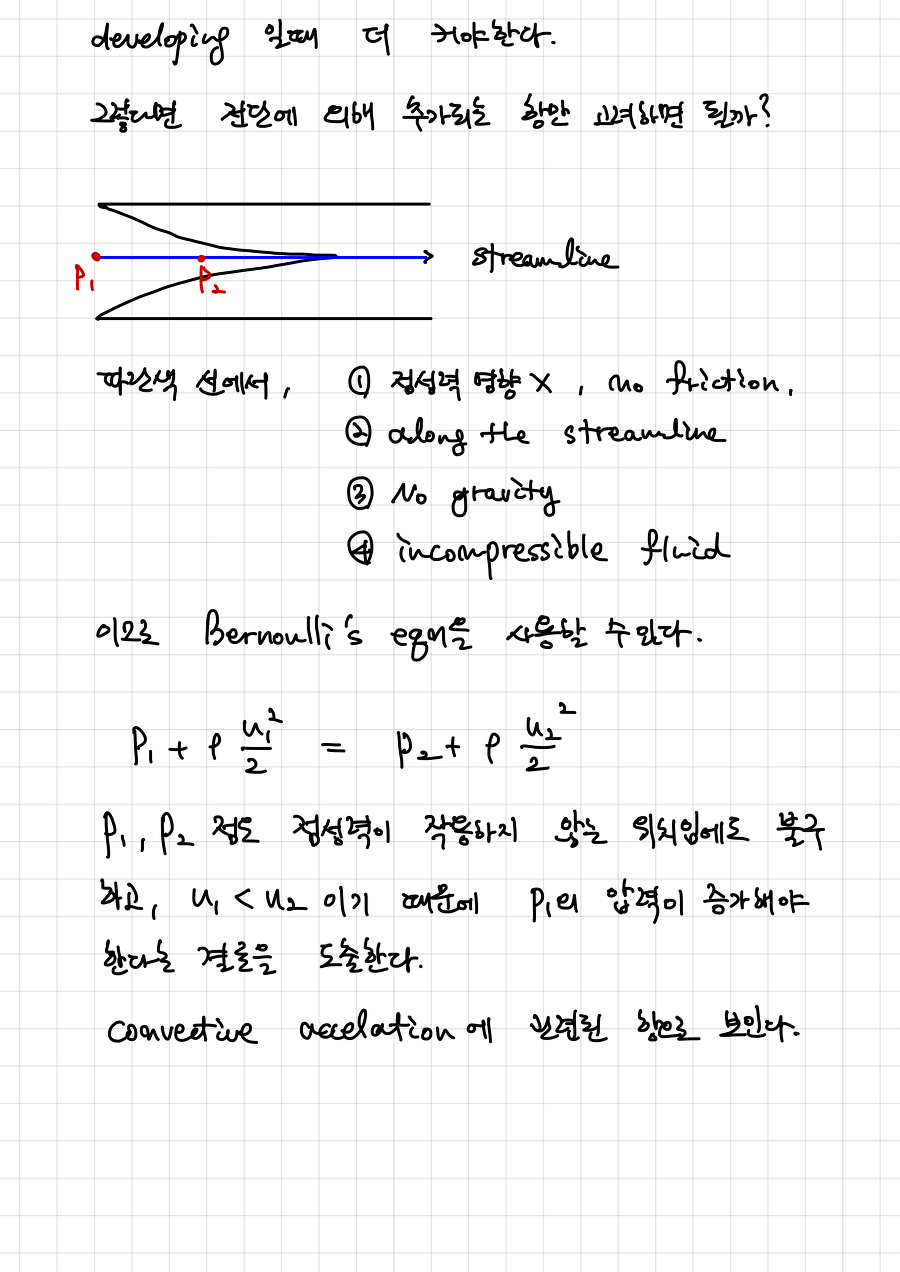 developing 일때 더 커야한다.
그렇다면 전단에 의해 추가되는 항만 고려하면 될까?
streamline
P₁
P₂
파란색 선에서, ① 점성력 영향 X , no friction,
② along the streamline
③ No gravity
④ incompressible fluid
이므로 Bernoulli's eqn을 사용할 수 있다.
P₁ + ρ u₁²/2 = P₂ + ρ u₂²/2
P₁, P₂ 점도 점성력이 작용하지 않는 위치임에도 불구
하고, u₁ < u₂ 이기 때문에 P₁의 압력이 증가해야
한다는 결론을 도출한다.
convective accelation에 관련된 항으로 보인다.